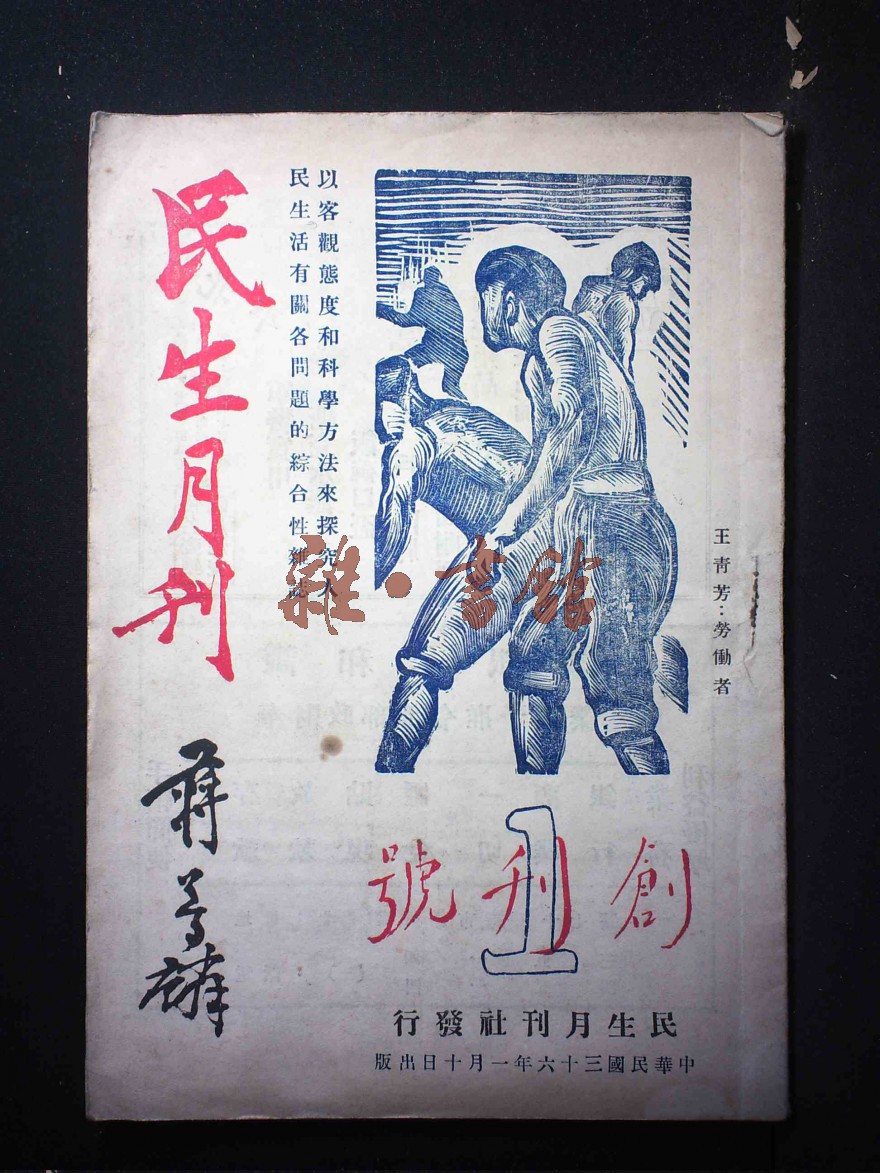 民生月刊
以客觀態度和科學方法來探究人
民生活有關各問題的綜合性雜誌
王青芳：勞働者
雜·書館
創刊號
1
民生月刊社發行
中華民國三十六年一月十日出版
蔣